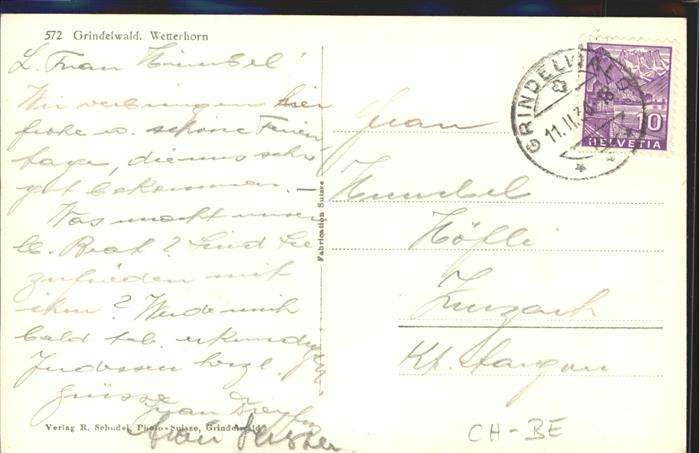 572 Grindelwald. Wetterhorn
L. Frau Humbel!
Wir verbringen hier
frohe u. schöne Ferien-
tage, die uns sehr
gut bekommen. –
Was macht unser
lb. Beat? Sind Sie
zufrieden mit
ihm? Werde mich
bald tel. erkundigen
Indessen herzl.
Grüsse
Frau
Frau
Verlag R. Schudel, Photo-Suisse, Grindelwald
Fabrication Suisse
GRINDELWALD
11.II.
10
HELVETIA
Frau
Humbel
Höfli
Zurzach
Kt. Aargau
CH-BE